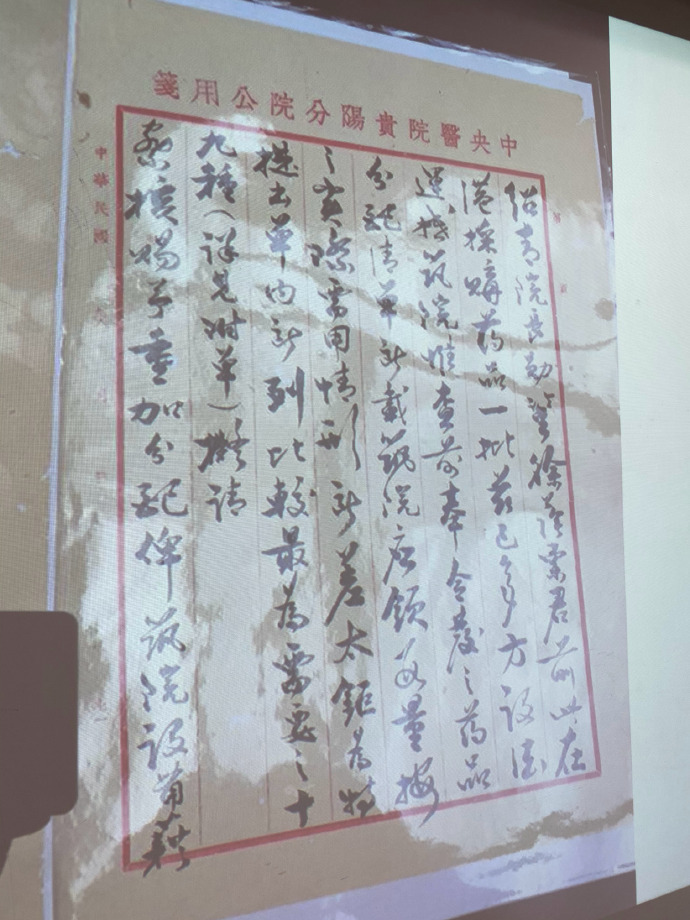 中央醫院貴陽分院公用箋
紹青院長勛鑒徐君前此在
港採購藥品一批茲已多方設法
運抵筑院惟查前奉令發之藥品
分配清單所載筑院應領數量按
之實際需用情形所差太鉅為特
提出單內所列比較最為需要之十
九種（詳見附單）擬請
察核賜予重加分配俾筑院設備藉
中華民國